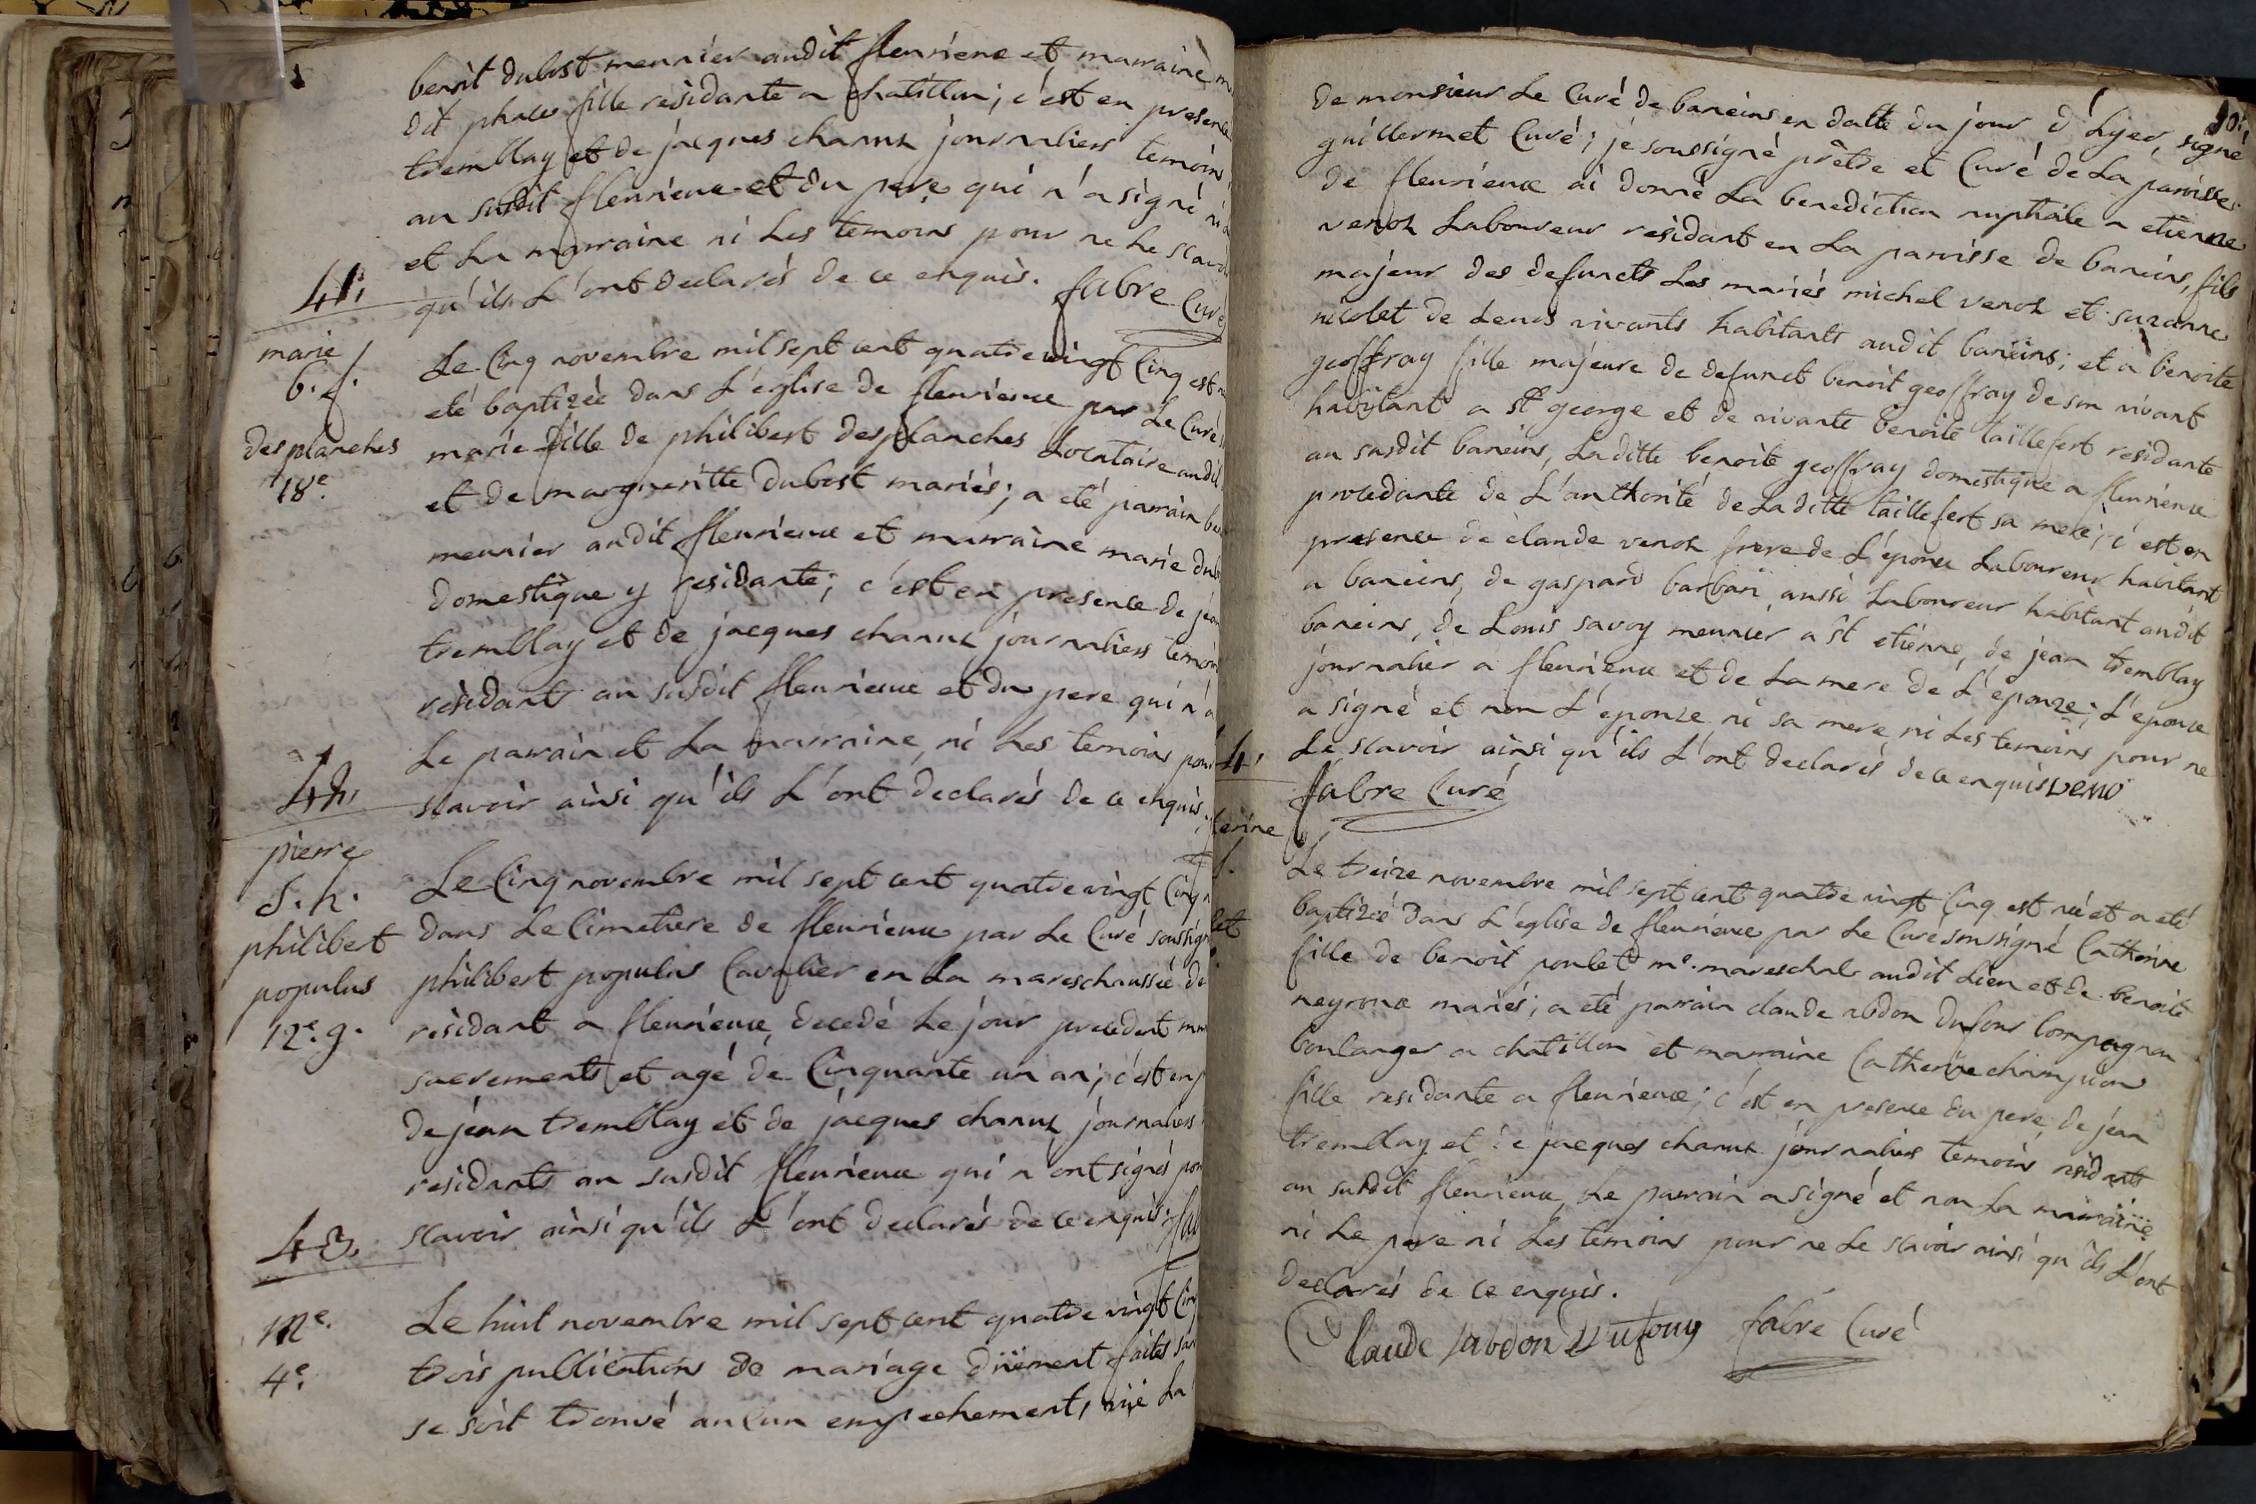 benoit dubost meunier audit fleurieue et marraine
dit phale fille residante a chatillon; c'est en presence
tremblay et de jacques chanut journaliers temoins
au susdit fleurieue et du pere qui n'a signé ni
et la marraine ni les temoins pour ne le scavoir
qu'ils L'ont declarés de ce enquis. fabre Curé
41.
marie
b. f.
desplanches
18e.
Le Cinq novembre mil sept cent quatre vingt Cinq est
eté baptizée dans L'eglise de fleurieue par Le Curé
marie fille de philibert desplanches Locataire audit
et de margueritte dubost mariés; a eté parrain
meunier audit fleurieue et marraine marie
domestique y residante; c'est en presence de jean
tremblay et de jacques chanut journaliers temoins
residants au susdit fleurieue et du pere qui n'a
Le parrain et La marraine ni Les temoins pour
scavoir ainsi qu'ils L'ont declarés de ce enquis.
42.
pierre
S. h.
philibert
populus
12e. g.
Le Cinq novembre mil sept cent quatre vingt Cinq
dans Le Cimetiere de fleurieue par Le Curé soussigné
philibert populus Cavalier en La mareschaussée de
residant a fleurieue, decedé Le jour precedent
sacrements et agé de Cinquante un an; c'est en
de jean tremblay et de jacques chanut journaliers
residants au susdit fleurieue qui n'ont signés pour
scavoir ainsi qu'ils L'ont declarés de ce enquis.
43.
me.
4e.
Le huit novembre mil sept cent quatre vingt Cinq
trois publications de mariage düement faites sans
se soit trouvé aucun empechement, vüe La
de monsieur Le Curé de baneins en datte du jour d'hyer, signé
guillermet Curé; je soussigné prêtre et Curé de La paroisse
de fleurieue ai donné La benediction nuptiale a etienne
venot Laboureur residant en La paroisse de baneins, fils
majeur des defuncts Les mariés michel venot et suzanne
nicolet de Leurs vivants habitants audit baneins; et a benoite
geoffray fille majeure de defunct benoit geoffray de son vivant
habitant a st george et de vivante benoite taillefert residante
au susdit baneins, Laditte benoite geoffray domestique a fleurieue
procedante de L'authorité de Laditte taillefert sa mere; c'est en
presence de claude venot frere de L'époux Laboureur habitant
a baneins, de gaspard barbari aussi Laboureur habitant audit
baneins, de Louis savoy meunier a st etienne, de jean tremblay
journalier a fleurieue et de La mere de L'épouze; L'epoux
a signé et non L'epouze ni sa mere ni Les temoins pour ne
Le scavoir ainsi qu'ils L'ont declarés de ce enquis veno
fabre Curé
Le treize novembre mil sept cent quatre vingt Cinq est née et a eté
baptizée dans L'église de fleurieue par Le Curé soussigné Catherine
fille de benoit poulet me. mareschal audit Lieu et de benoite
neyroux mariés; a eté parrain claude abdon dufour Compagnon
boulanger a chatillon et marraine Catherine champion
fille residante a fleurieue; c'est en presence du pere, de jean
tremblay et de jacques chanut journaliers temoins residants
au susdit fleurieue, Le parrain a signé et non La marraine
ni Le pere ni Les temoins pour ne Le scavoir ainsi qu'ils L'ont
declarés de ce enquis.
Claude abdon Dufour fabre Curé